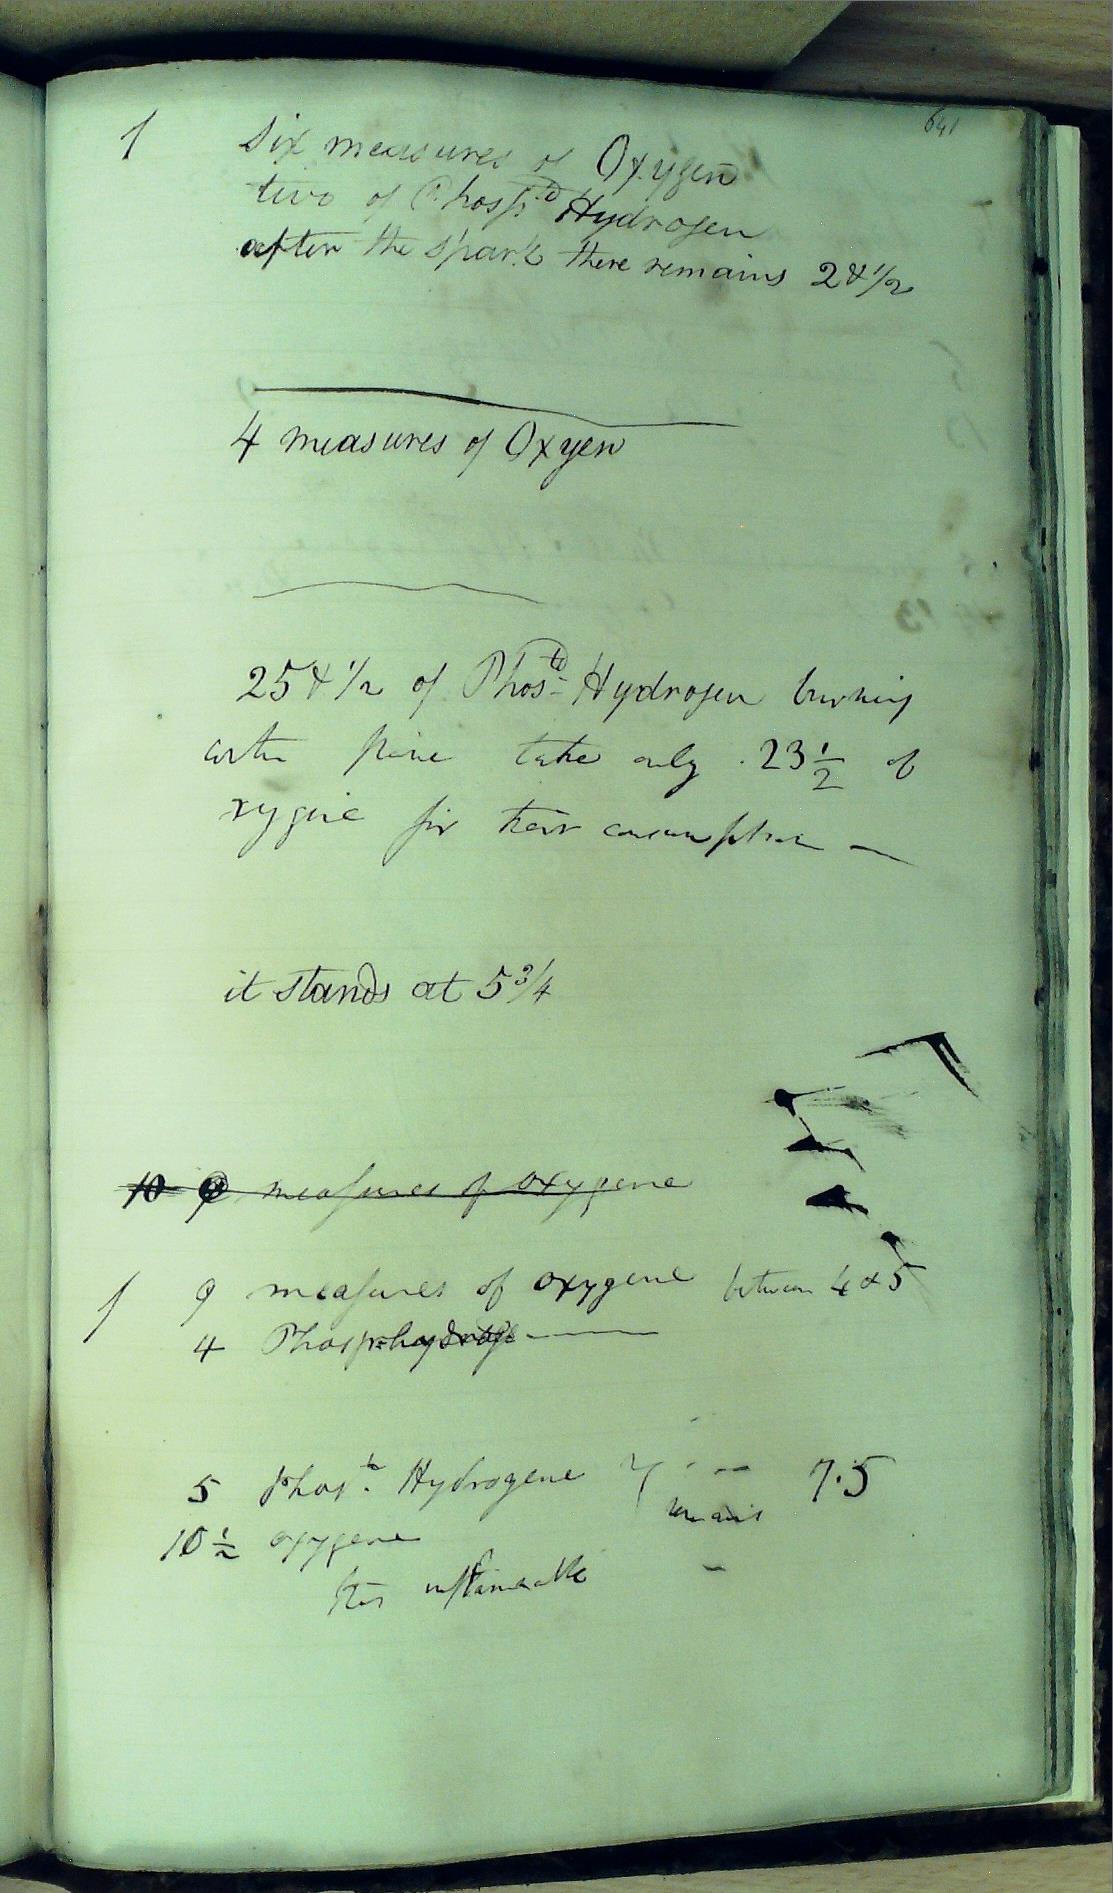 641
1 Six measures of Oxygen
two of Phosp.d Hydrogen
after the spark there remains 2 & 1/2
4 measures of Oxyen
25 & 1/2 of Phos.td Hydrogen burning
take only 23 1/2 of
xygene for their consumption —
it stands at 5 3/4
10 9 measures of oxygene
1 9 measures of oxygene between 4 & 5
4 Phosp-hydroge
5 Phos.td Hydrogene 7.5
remains
10 1/2 oxygene
inflameable